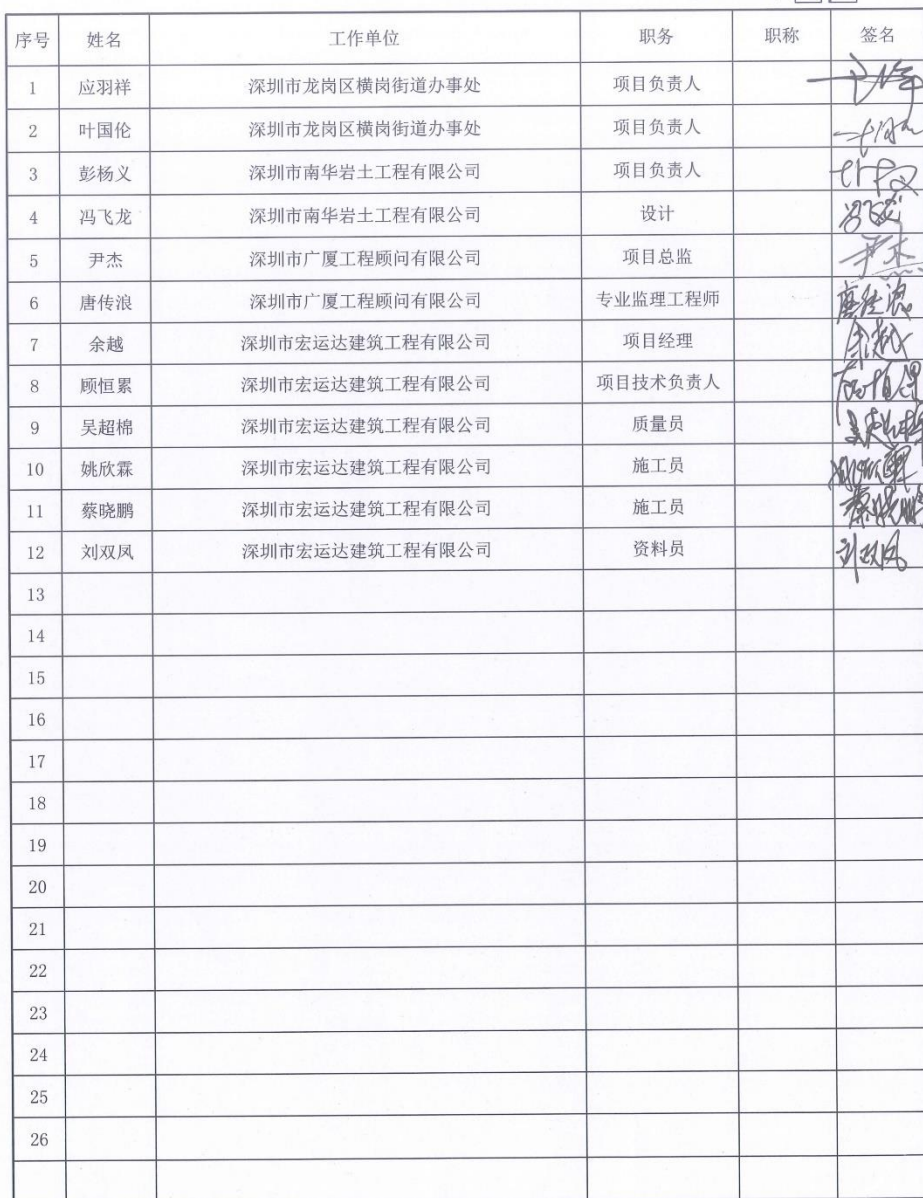 序号 姓名 工作单位 职务 职称 签名
1 应羽祥 深圳市龙岗区横岗街道办事处 项目负责人
2 叶国伦 深圳市龙岗区横岗街道办事处 项目负责人
3 彭杨义 深圳市南华岩土工程有限公司 项目负责人
4 冯飞龙 深圳市南华岩土工程有限公司 设计 冯飞龙
5 尹杰 深圳市广厦工程顾问有限公司 项目总监 尹杰
6 唐传浪 深圳市广厦工程顾问有限公司 专业监理工程师 唐传浪
7 余越 深圳市宏运达建筑工程有限公司 项目经理 余越
8 顾恒累 深圳市宏运达建筑工程有限公司 项目技术负责人 顾恒累
9 吴超棉 深圳市宏运达建筑工程有限公司 质量员 吴超棉
10 姚欣霖 深圳市宏运达建筑工程有限公司 施工员 姚欣霖
11 蔡晓鹏 深圳市宏运达建筑工程有限公司 施工员 蔡晓鹏
12 刘双凤 深圳市宏运达建筑工程有限公司 资料员 刘双凤
13
14
15
16
17
18
19
20
21
22
23
24
25
26